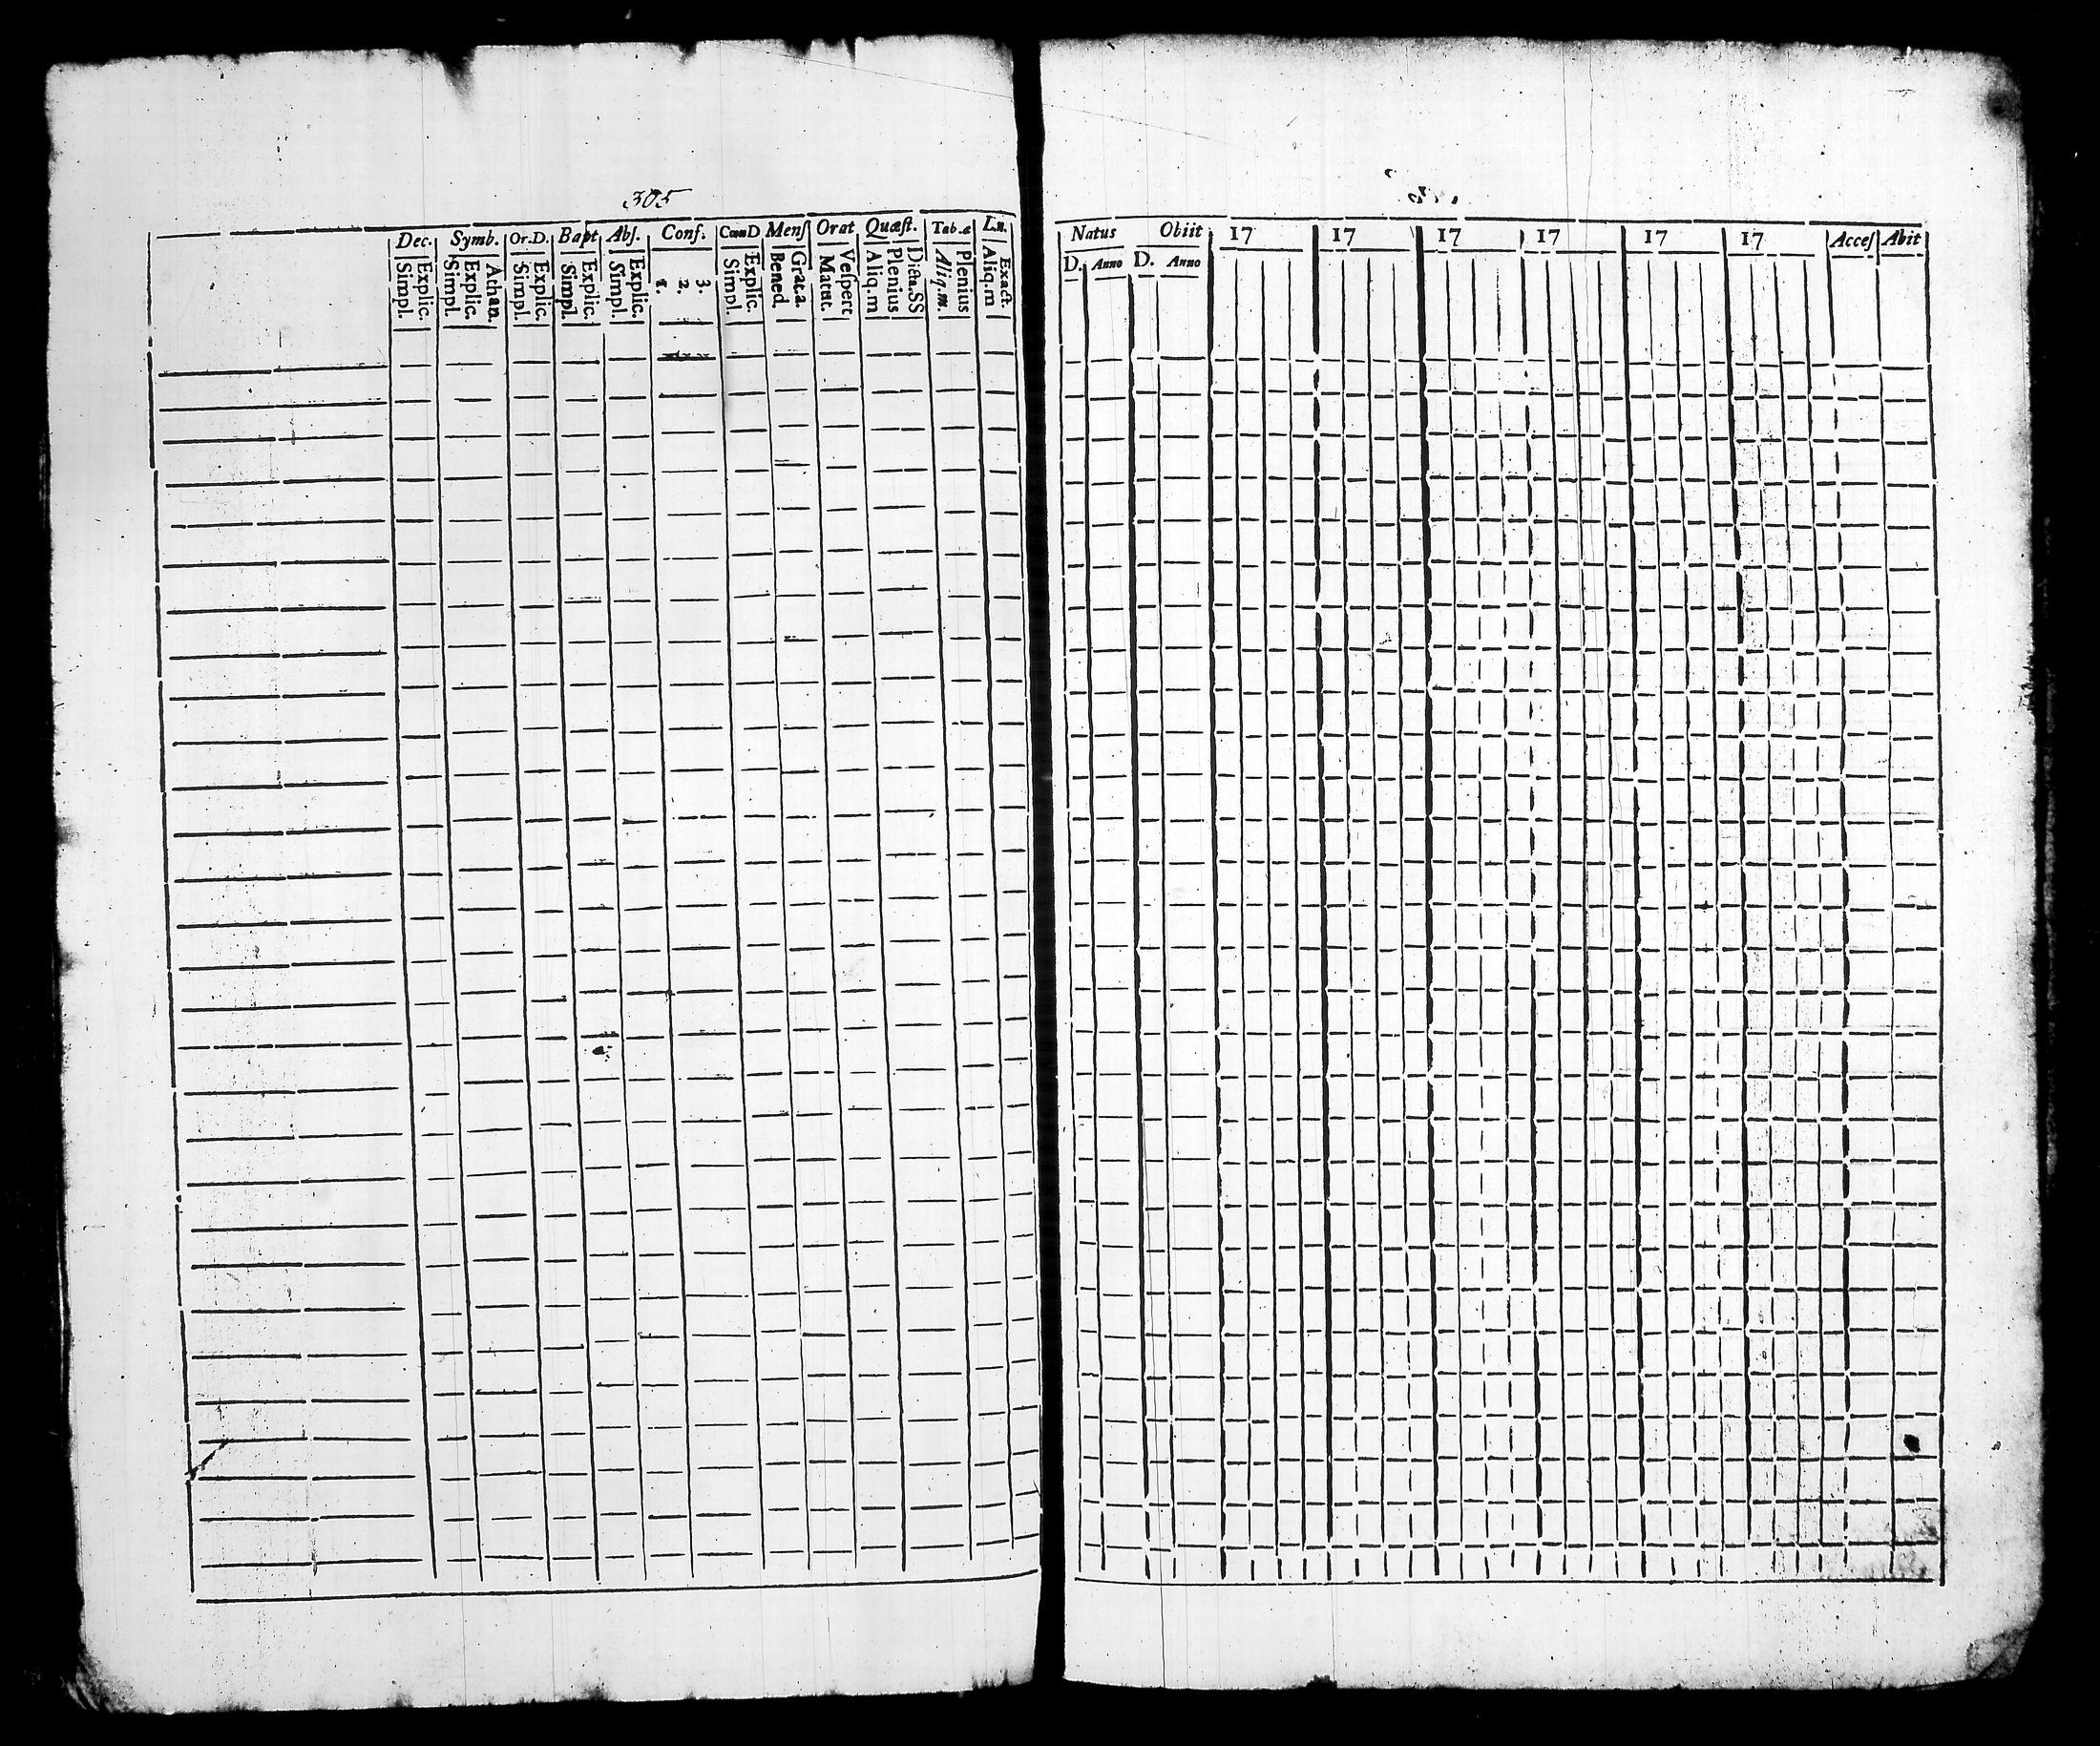 305
Dec. Symb. Or.D. Bapt Abſ. Conf. CœnD Menſ Orat Quæſt. Tab.æ L.n.
Simpl. Explic. Simpl. Explic. Athan. Simpl. Explic. Simpl. Explic. Simpl. Explic. 1. 2. 3. Simpl. Explic. Bened. Grat.a. Matut. Veſpert Aliq.m Plenius Dicta.SS Aliq.m. Plenius Aliq.m Exact.
Natus Obiit 17 17 17 17 17 17 Acceſ Abit
D. Anno D. Anno